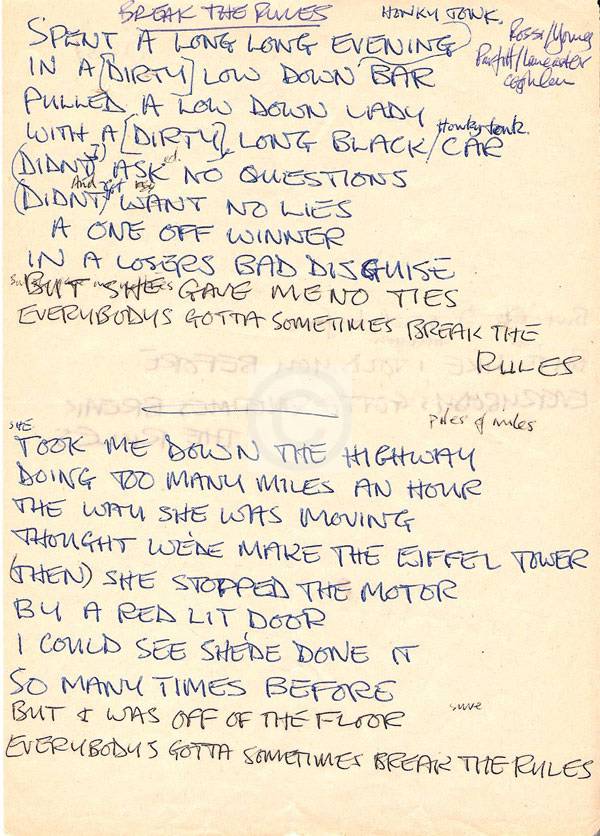 BREAK THE RULES
HONKY TONK.
Rossi/Young
Parfitt/Lancaster
Coghlan
SPENT A LONG LONG EVENING
IN A [DIRTY] LOW DOWN BAR
PULLED A LOW DOWN LADY
Honky tonk.
WITH A [DIRTY], LONG BLACK/CAR
(DIDNT) ASK ed. NO QUESTIONS
And got no
(DIDNT) WANT NO LIES
A ONE OFF WINNER
IN A LOSERS BAD DISGUISE
BUT SHES GAVE ME NO TIES
EVERYBODYS GOTTA SOMETIMES BREAK THE
RULES
piles of miles
SHE
TOOK ME DOWN THE HIGHWAY
DOING TOO MANY MILES AN HOUR
THE WAY SHE WAS MOVING
THOUGHT WE'DE MAKE THE EIFFEL TOWER
(THEN) SHE STOPPED THE MOTOR
BY A RED LIT DOOR
I COULD SEE SHE'DE DONE IT
SO MANY TIMES BEFORE
BUT I WAS OFF OF THE FLOOR
EVERYBODYS GOTTA SOMETIMES BREAK THE RULES